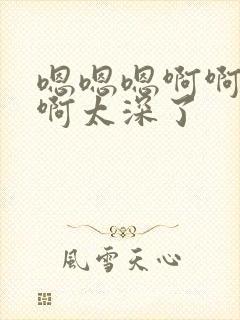 嗯嗯嗯啊啊
啊太深了
風雪天心